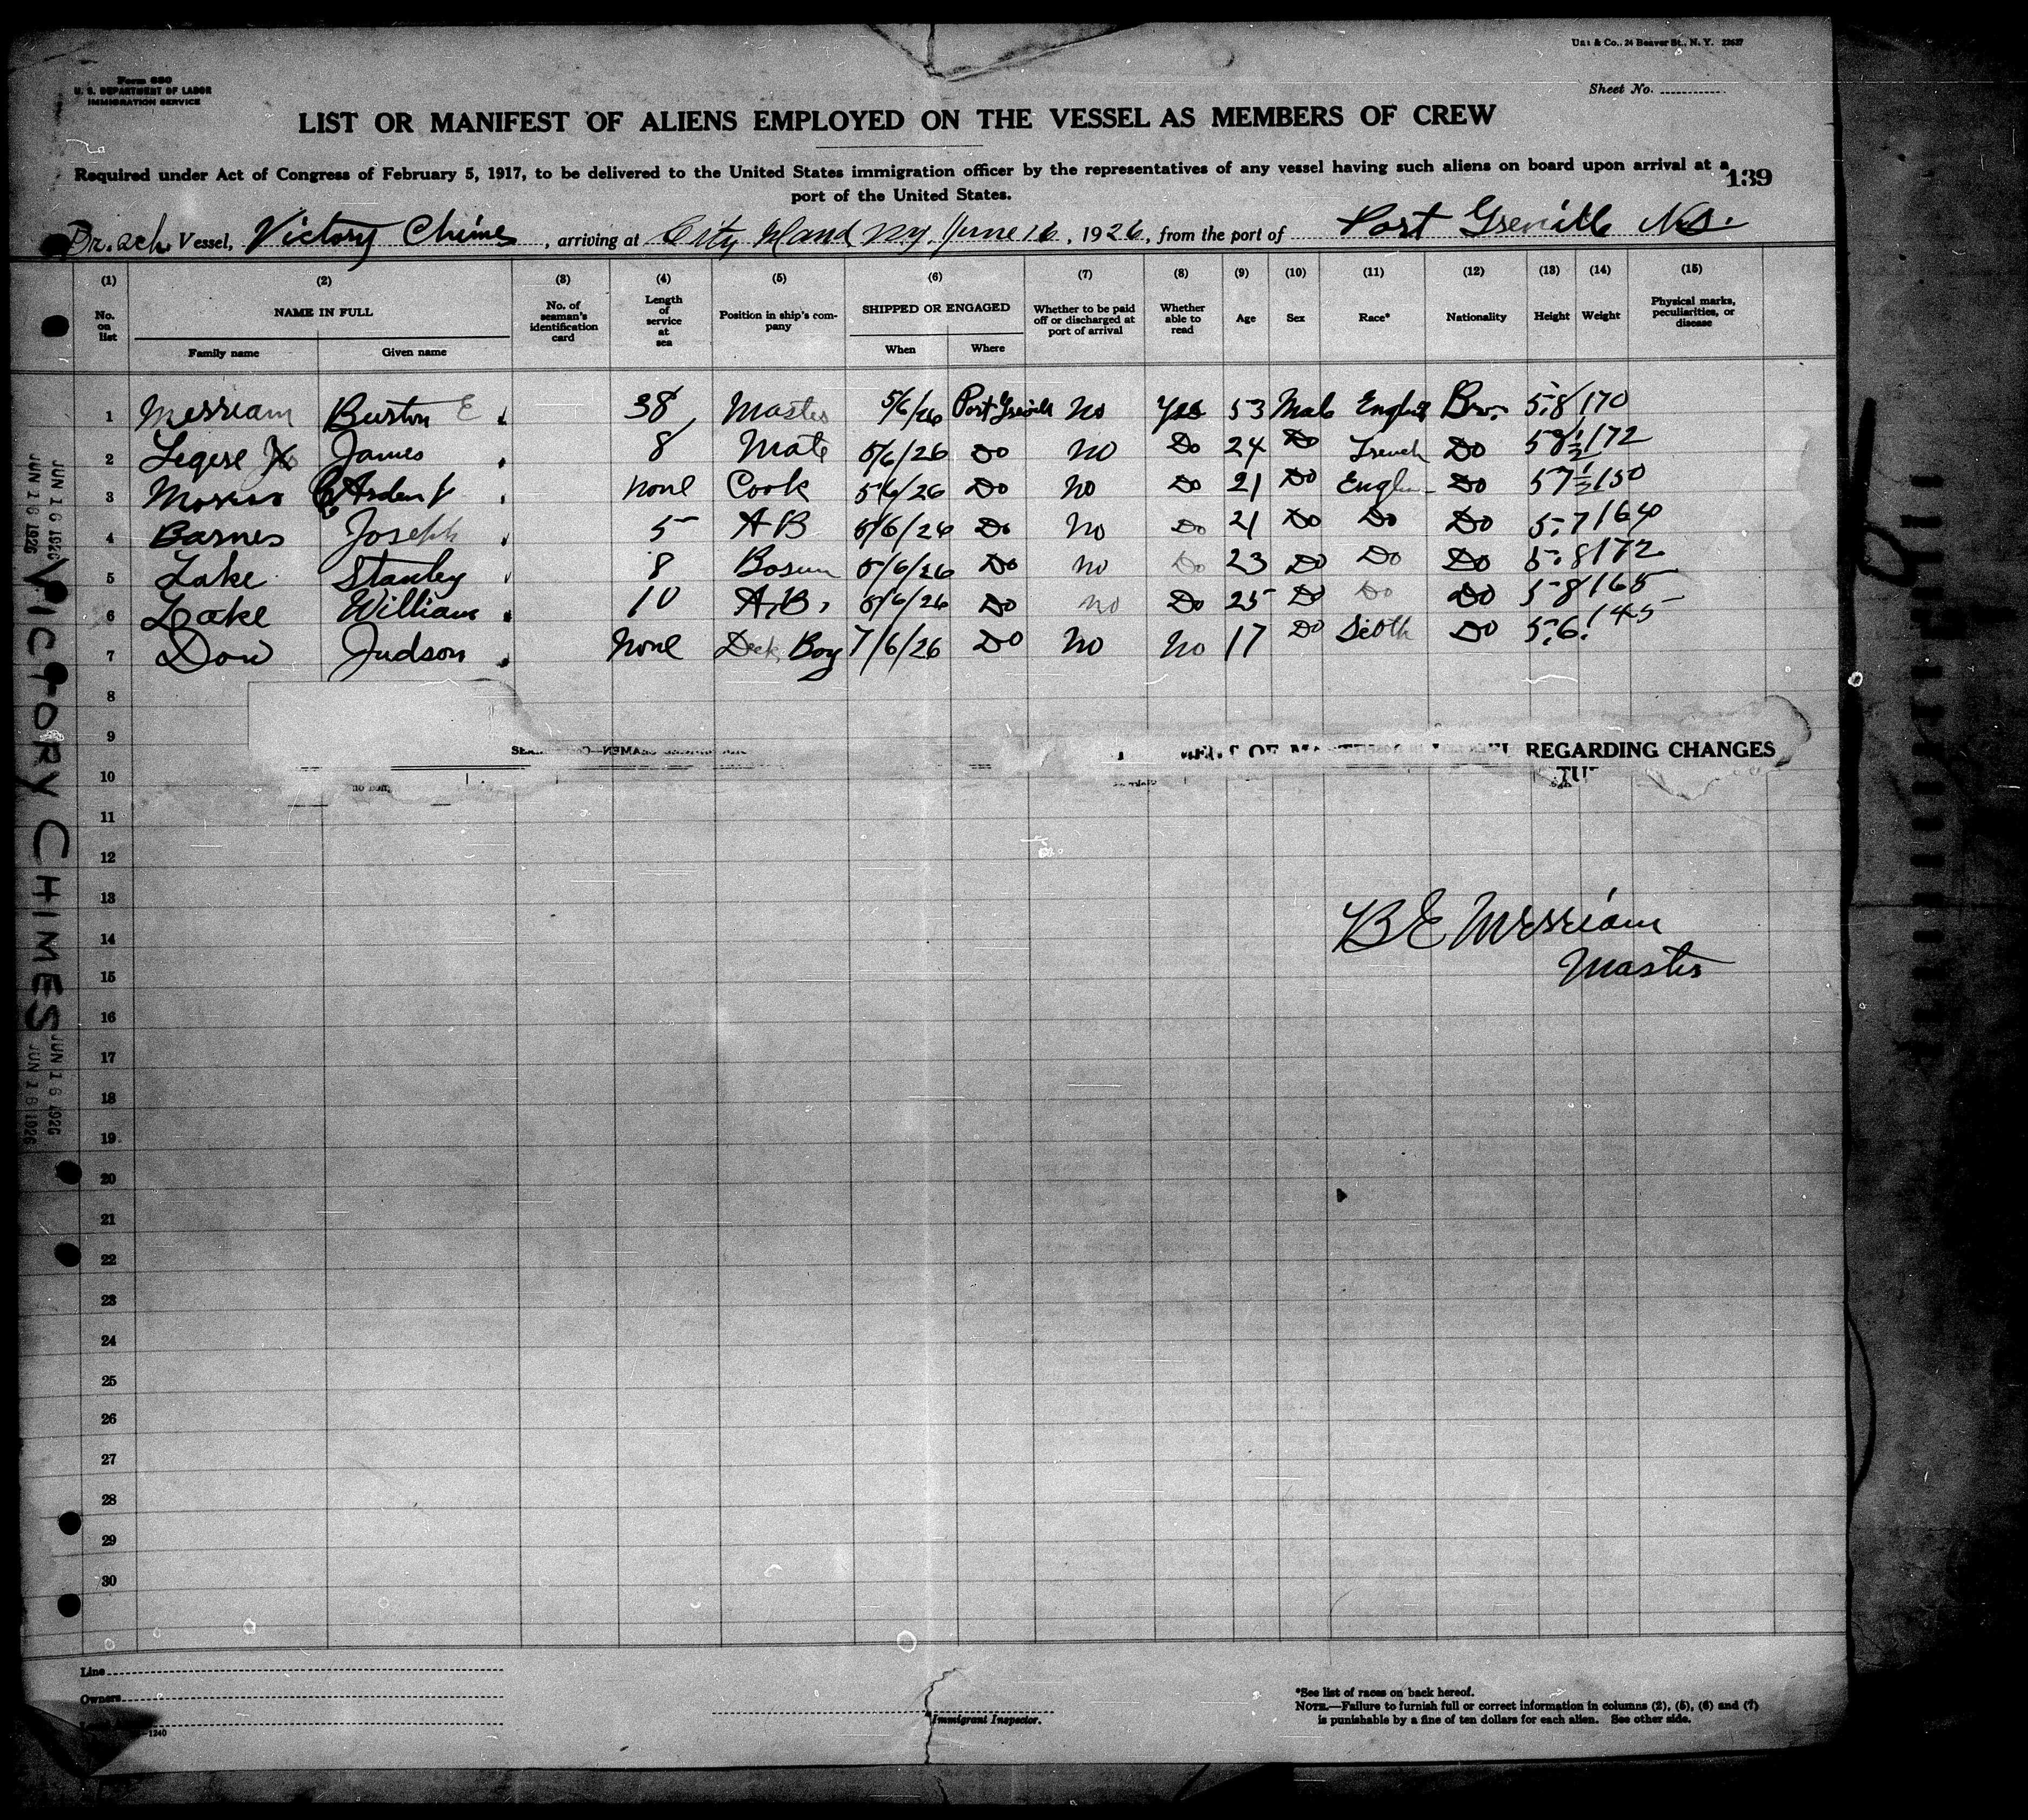 Form 680
U. S. DEPARTMENT OF LABOR
IMMIGRATION SERVICE
& Co., 24 Beaver St., N. Y.
Sheet No.
LIST OR MANIFEST OF ALIENS EMPLOYED ON THE VESSEL AS MEMBERS OF CREW
Required under Act of Congress of February 5, 1917, to be delivered to the United States immigration officer by the representatives of any vessel having such aliens on board upon arrival at a
port of the United States.
139
Vessel, Victory Chimes, arriving at City Island NY. June 16, 1926, from the port of Port Greville N.S.
(1) (2) (3) (4) (5) (6) (7) (8) (9) (10) (11) (12) (13) (14) (15)
No. on list NAME IN FULL Family name Given name No. of seaman's identification card Length of service at sea Position in ship's company SHIPPED OR ENGAGED When Where Whether to be paid off or discharged at port of arrival Whether able to read Age Sex Race* Nationality Height Weight Physical marks, peculiarities, or disease
1 Merriam Burton E 38 Master 5/6/26 Port Greville No Yes 53 Male English Br. 5.8 170
2 Legere James 8 Mate 5/6/26 Do No Do 24 Do French Do 5 8½ 172
3 Arden none Cook 5/6/26 Do No Do 21 Do Do 5 7½ 150
4 Barnes Joseph 5 AB 5/6/26 Do No Do 21 Do Do Do 5.7
5 Lake Stanley 8 Bosun 5/6/26 Do No Do 23 Do Do Do 5.8 172
6 Lake William 10 A.B. 5/6/26 Do No Do 25 Do Do Do 5-8 165
7 Dow Judson None Deck Boy 7/6/26 Do No No 17 Do Do 5.6. 145
8
9
REGARDING CHANGES
10
11
12
13
B E Merriam
14
Master
15
16
17
18
19
20
21
22
23
24
25
26
27
28
29
30
VICTORY CHIMES
JUN 16 1926
JUN 16 1926
JUN 16 1926
JUN 16 1926
Line
Owners
Immigrant Inspector.
*See list of races on back hereof.
NOTE.—Failure to furnish full or correct information in columns (2), (5), (6) and (7)
is punishable by a fine of ten dollars for each alien. See other side.
—1240